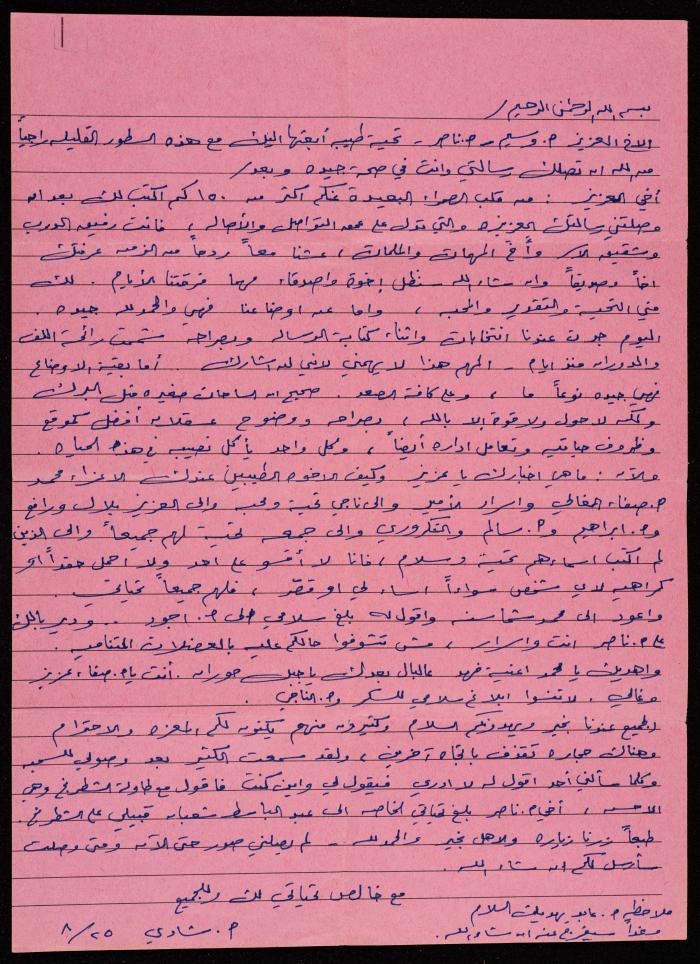 بسم الله الرحمن الرحيم /
الاخ العزيز م. وسيم م. ناصر - تحية طيبه أبعثها اليك مع هذه السطور القليله راجياً
من الله ان تصلك رسالتي وانت في صحة جيده وبعد /
أخي العزيز : من قلب الصحراء البعيدة عنكم اكثر من ١٥٠ كم اكتب لك بعد ان
وصلتني رسالتك العزيزه والتي تدل على عمق التواصل والأصاله ، فانت رفيق الدرب
وشقيق وأخ المهمات والملمات ، عشنا معاً ردحاً من الزمن عرفتك
اخاً وصديقاً وان شاء الله سنظل إخوة واصدقاء مهما فرقتنا الأيام . لك
مني التحية والتقدير والمحبه ، واما عن اوضاعنا فهي والحمد لله جيده .
اليوم جرت عندنا انتخابات واثناء كتابة الرساله وبصراحه شممت رائحة اللف
والدوران منذ ايام - المهم هذا لا يهمني لانني لن اشارك . أما بقية الاوضاع
فهي جيده نوعاً ما ، وعلى كافة الصعد . صحيح ان الساحات صغيره مثل البرك
ولكن لا حول ولا قوة إلا بالله ، بصراحه ووضوح عسقلان أفضل كموقع
وظروف حياتيه وتعامل اداره أيضاً ، وكل واحد يأكل نصيبه في هذه الحياه .
والآن : ما هي اخبارك يا عزيز وكيف الاخوه الطيبين عندك الاعزاء محمد
م. صفاء الغالي واسرار الأمير والى ناجي تحية ومحبه والى العزيز بلال ورافع
وم. ابراهيم وم. سالم والتكروري والى جمعه تحية لهم جميعاً والى الذين
لم اكتب اسماءهم تحية وسلام ، فانا لا أقسو على احد ولا احمل حقداً او
كراهيه لاي شخص سواءاً اساء لي او قصّر ، فلهم جميعاً تحياتي .
واعود الى محمد شماسنه واقول له بلغ سلامي الى م. اجود .. ودير بالك
على م. ناصر انت واسرار ، مش تشوفوا حالكم عليه بالعضلات المتناميه .
واهديك يا محمد اغنية فهد عالبال بعدك يا جبل حوران . أنت يا م. صفاء عزيز
وغالي . لا تنسوا ابلاغ سلامي للسكر وم. الناجي .
الجميع عندنا بخير ويهدونكم السلام وكثيرون منهم يكنون لكم المعزه والاحترام
وهناك حجاره تقذف باتجاه آخرين ، ولقد سمعت الكثير بعد وصولي للسبع
وكلما سألني أحد اقول له لا ادري فيقول لي واين كنت فاقول مع طاولة الشطرنج وهي
الاحسن ، أخي م. ناصر بلغ تحياتي الخاصه الى عبد الباسط شعبان قبيلي على الشطرنج .
طبعاً زرنا زياره والاهل بخير والحمد لله - لم تصلني صور حتى الآن ومتى وصلت
سأرسل لكم ان شاء الله .
مع خالص تحياتي لك وللجميع
ملاحظه م. عابد يهديك السلام
وغداً سيفرج عنه ان شاء الله .
م. شادي ٢٥/٨